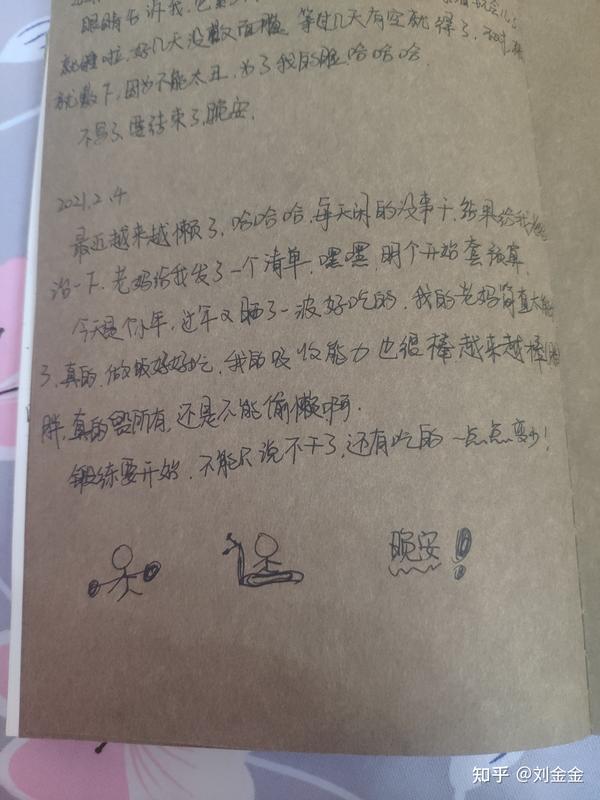 眼睛告诉我,它
就睡啦,好几天没敷面膜,等过几天有空就得了,不过,
就敷下,因为不能太丑,为了我的脸,哈哈哈.
不写了,要结束了,晚安.
2021.2.4
最近越来越懒了,哈哈哈,每天闲的没事干,结果给我
治一下.老妈给我发了一个清单,嘿嘿,明个开始套预算.
今天是个小年,过年又晒了一波好吃的.我的老妈简直太
了,真的,做饭好好吃,我的吸收能力也很棒越来越棒
胖,真的毁所有,还是不能偷懒啊.
锻练要开始,不能只说不干了,还有吃的一点点变少!
晚安!
知乎 @刘金金